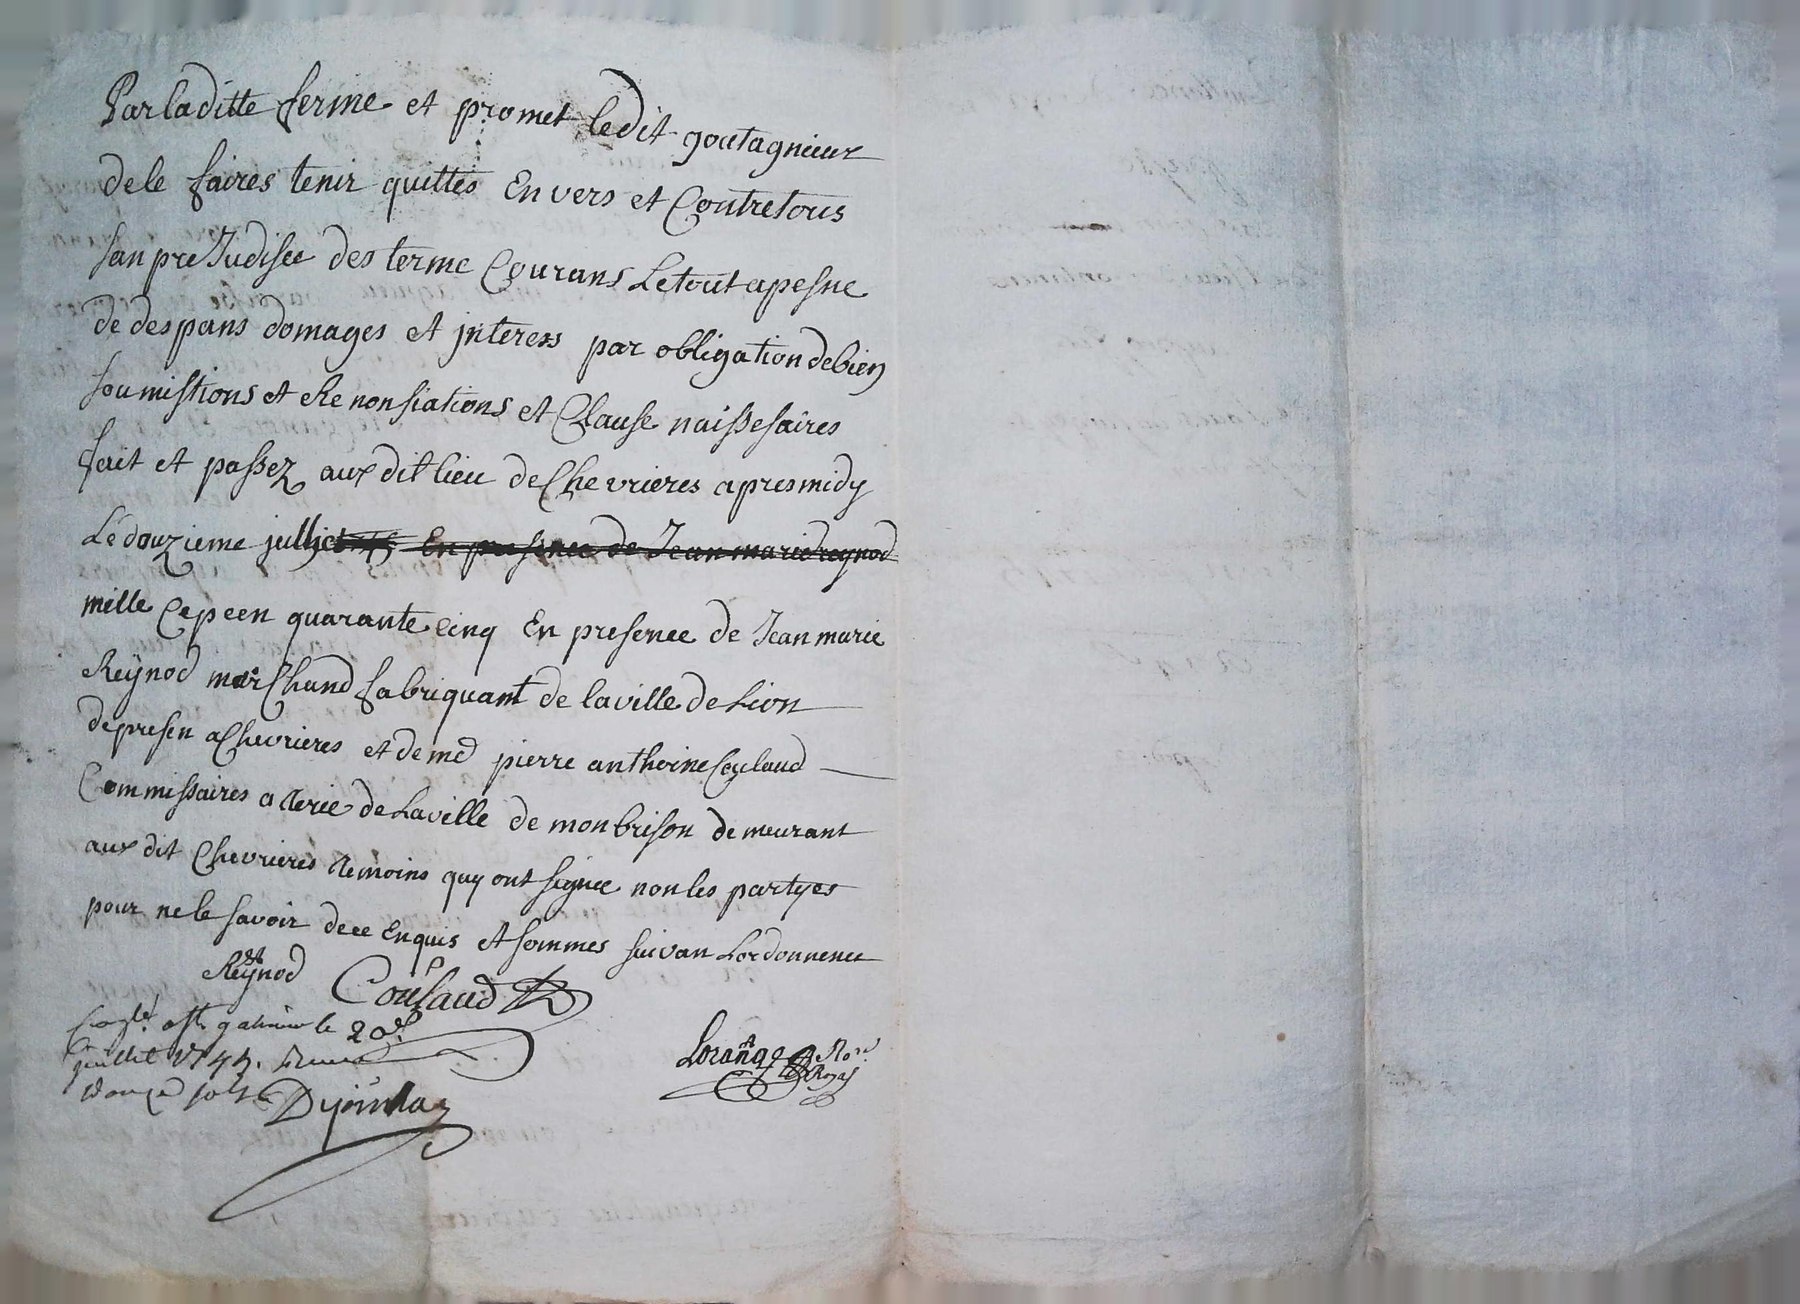 Par la ditte ferme et promet ledit goutagnieux
de le faires tenir quittes En vers et Contre tous
san preJudisee des terme Courans Le tout a pesne
de despans domages et jnteress par obligation de bien
soumistions et Renonsiations et Clause naissesaires
fait et passez aux dit lieu de Chevrieres apres midy
Le douzieme julliet En presence de Jean marie reynod
mille Cepcen quarante cinq En presence de Jean marie
Reynod marchand fabriquant de la ville de Lion
de presen a Chevrieres et de me pierre anthoine Coylaud
Commissaires a terie de La ville de monbrison demeurant
aux dit Chevrieres temoins quy ont signee non les partyes
pour ne le savoir de ce Enquis et sommes suivan Lordonnence
Reynod Coulaud
a st galmier le 20e
juillet 1745.
douze sols
Lorange No.re Royal